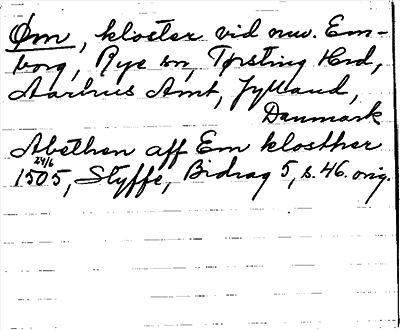 Øm, kloster vid nuv. Em-
borg, Rye sn, Tørsting Hrd,
Aarhus Amt, Jylland,
Danmark
Abethen aff Em klosther
24/6
1505, Styffe, Bidrag 5, s. 46. orig.